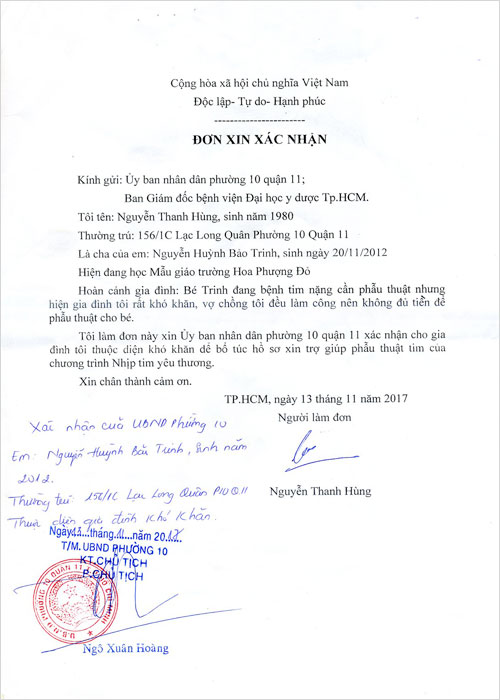 Cộng hòa xã hội chủ nghĩa Việt Nam
Độc lập- Tự do- Hạnh phúc
-----------------------
ĐƠN XIN XÁC NHẬN
Kính gửi: Ủy ban nhân dân phường 10 quận 11;
Ban Giám đốc bệnh viện Đại học y dược Tp.HCM.
Tôi tên: Nguyễn Thanh Hùng, sinh năm 1980
Thường trú: 156/1C Lạc Long Quân Phường 10 Quận 11
Là cha của em: Nguyễn Huỳnh Bảo Trinh, sinh ngày 20/11/2012
Hiện đang học Mẫu giáo trường Hoa Phượng Đỏ
Hoàn cảnh gia đình: Bé Trinh đang bệnh tim nặng cần phẫu thuật nhưng
hiện gia đình tôi rất khó khăn, vợ chồng tôi đều làm công nên không đủ tiền để
phẫu thuật cho bé.
Tôi làm đơn này xin Ủy ban nhân dân phường 10 quận 11 xác nhận cho gia
đình tôi thuộc diện khó khăn để bổ túc hồ sơ xin trợ giúp phẫu thuật tim của
chương trình Nhịp tim yêu thương.
Xin chân thành cảm ơn.
TP.HCM, ngày 13 tháng 11 năm 2017
Người làm đơn
Nguyễn Thanh Hùng
Xác nhận của UBND Phường 10
Em: Nguyễn Huỳnh Bảo Trinh, sinh năm
2012.
Thường trú 156/1C Lạc Long Quân P10Q11
Thuộc diện gia đình khó khăn.
Ngày 13 tháng 11 năm 20
T/M. UBND PHƯỜNG 10
KT.CHỦ TỊCH
P.CHỦ TỊCH
U.B.N.D PHƯỜNG 10 QUẬN 11
Ngô Xuân Hoàng